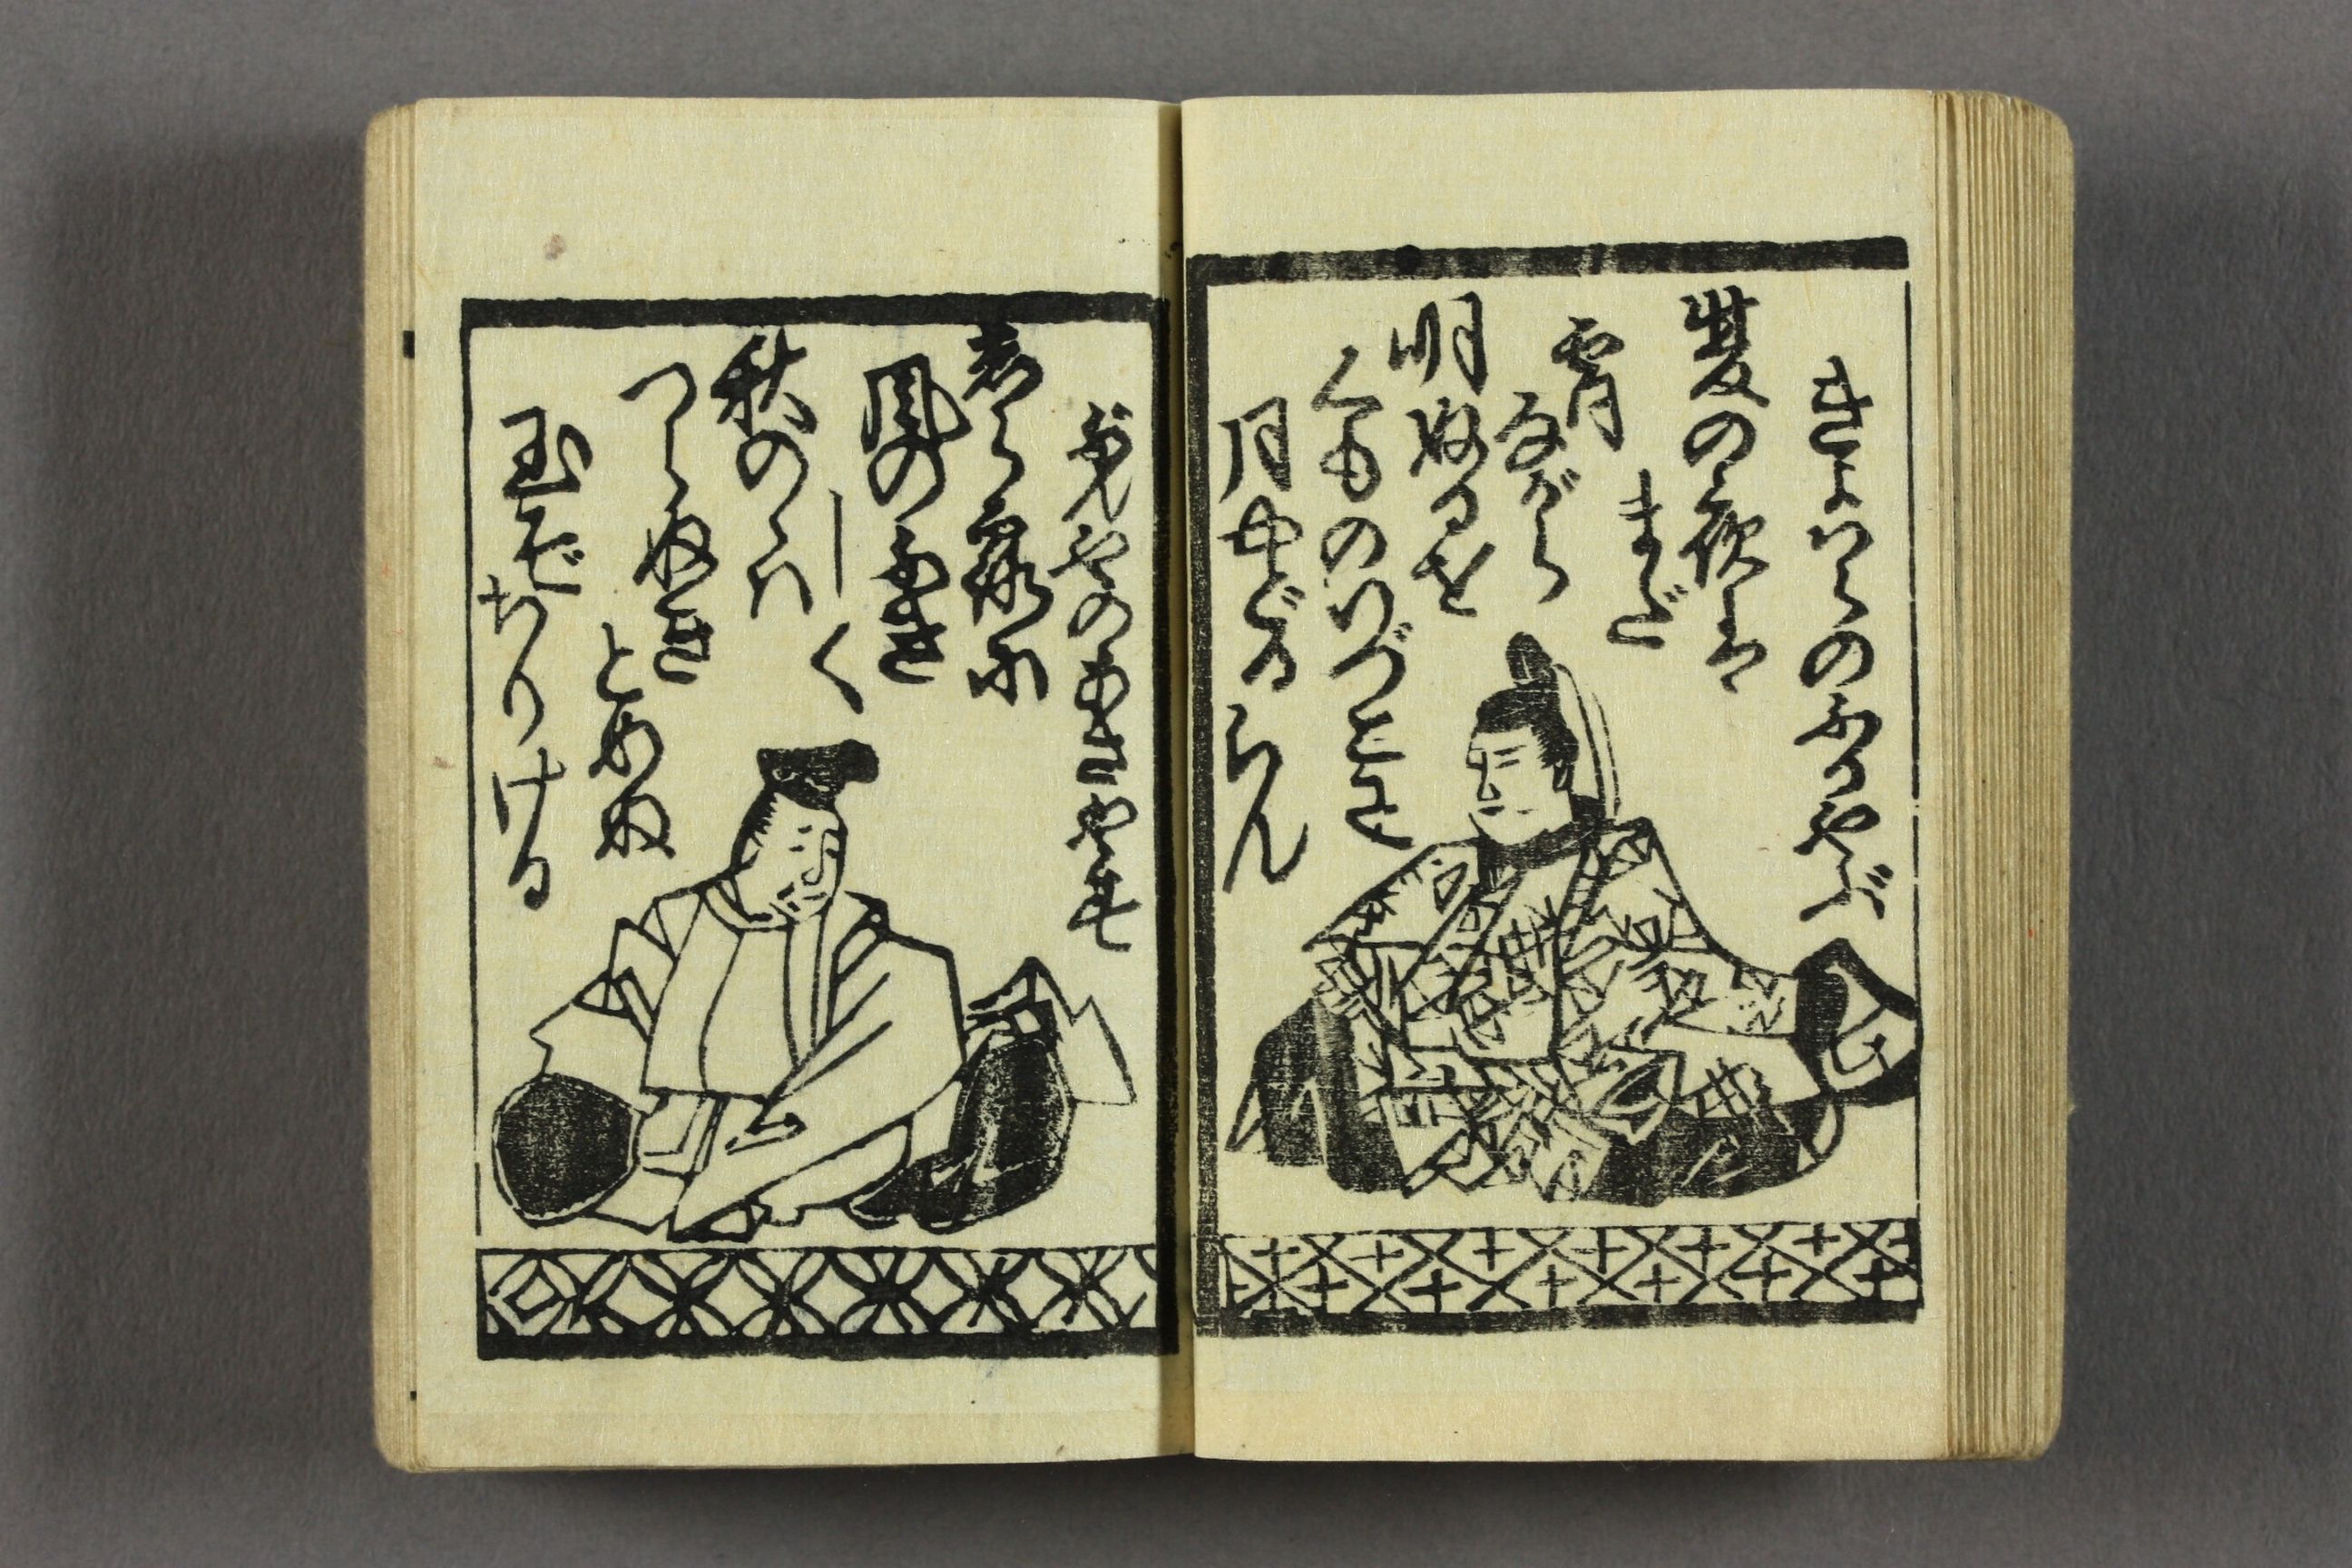 きよはらのふかやぶ
夏の夜は
まだ
宵
ながら
明ぬるを
くものいづこに
月やどるらん
ぶんやのあさやす
しら露に
風のふき
しく
秋のゝハ
つらぬき
とめぬ
玉ぞちりける